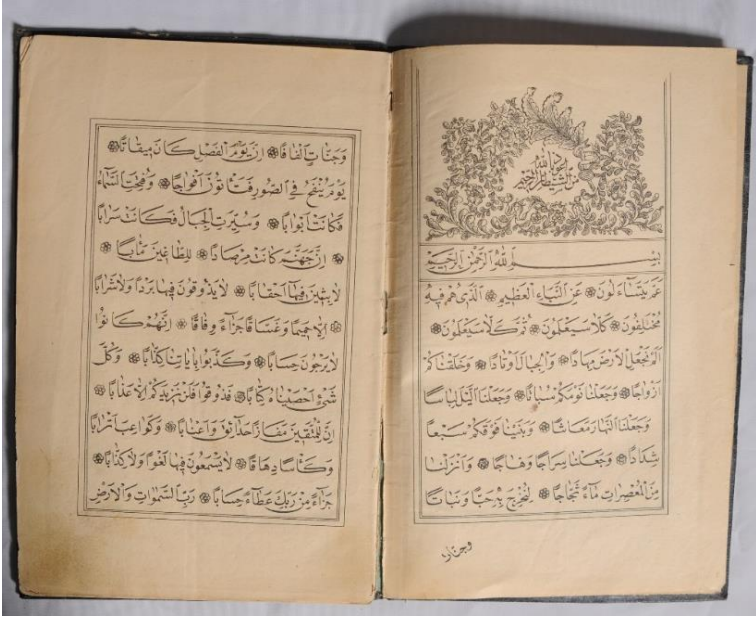 اعوذ بالله من الشيطان الرجيم
بِسْمِ اللهِ الرَّحْمٰنِ الرَّحِيمِ
عَمَّ يَتَسَاءَلُونَ ۞ عَنِ النَّبَاءِ الْعَظِيمِ ۞ اَلَّذِي هُمْ فِيهِ
مُخْتَلِفُونَ ۞ كَلَّا سَيَعْلَمُونَ ۞ ثُمَّ كَلَّا سَيَعْلَمُونَ ۞
اَلَمْ نَجْعَلِ الْاَرْضَ مِهَادًا ۞ وَالْجِبَالَ اَوْتَادًا ۞ وَخَلَقْنَاكُمْ
اَزْوَاجًا ۞ وَجَعَلْنَا نَوْمَكُمْ سُبَاتًا ۞ وَجَعَلْنَا الَّيْلَ لِبَاسًا
وَجَعَلْنَا النَّهَارَ مَعَاشًا ۞ وَبَنَيْنَا فَوْقَكُمْ سَبْعًا
شِدَادًا ۞ وَجَعَلْنَا سِرَاجًا وَهَّاجًا ۞ وَاَنْزَلْنَا
مِنَ الْمُعْصِرَاتِ مَاءً ثَجَّاجًا ۞ لِنُخْرِجَ بِهِ حَبًّا وَنَبَاتًا
وجنات
وَجَنَّاتٍ اَلْفَافًا ۞ اِنَّ يَوْمَ الْفَصْلِ كَانَ مِيقَاتًا ۞
يَوْمَ يُنْفَخُ فِي الصُّورِ فَتَأْتُونَ اَفْوَاجًا ۞ وَفُتِحَتِ السَّمَاءُ
فَكَانَتْ اَبْوَابًا ۞ وَسُيِّرَتِ الْجِبَالُ فَكَانَتْ سَرَابًا
۞ اِنَّ جَهَنَّمَ كَانَتْ مِرْصَادًا ۞ لِلطَّاغِينَ مَاٰبًا ۞
لَابِثِينَ فِيهَا اَحْقَابًا ۞ لَا يَذُوقُونَ فِيهَا بَرْدًا وَلَا شَرَابًا
۞ اِلَّا حَمِيمًا وَغَسَّاقًا جَزَاءً وِفَاقًا ۞ اِنَّهُمْ كَانُوا
لَا يَرْجُونَ حِسَابًا ۞ وَكَذَّبُوا بِاٰيَاتِنَا كِذَّابًا ۞ وَكُلَّ
شَيْءٍ اَحْصَيْنَاهُ كِتَابًا ۞ فَذُوقُوا فَلَنْ نَزِيدَكُمْ اِلَّا عَذَابًا ۞
اِنَّ لِلْمُتَّقِينَ مَفَازًا حَدَائِقَ وَاَعْنَابًا ۞ وَكَوَاعِبَ اَتْرَابًا
وَكَأْسًا دِهَاقًا ۞ لَا يَسْمَعُونَ فِيهَا لَغْوًا وَلَا كِذَّابًا ۞
جَزَاءً مِنْ رَبِّكَ عَطَاءً حِسَابًا ۞ رَبِّ السَّمٰوَاتِ وَالْاَرْضِ